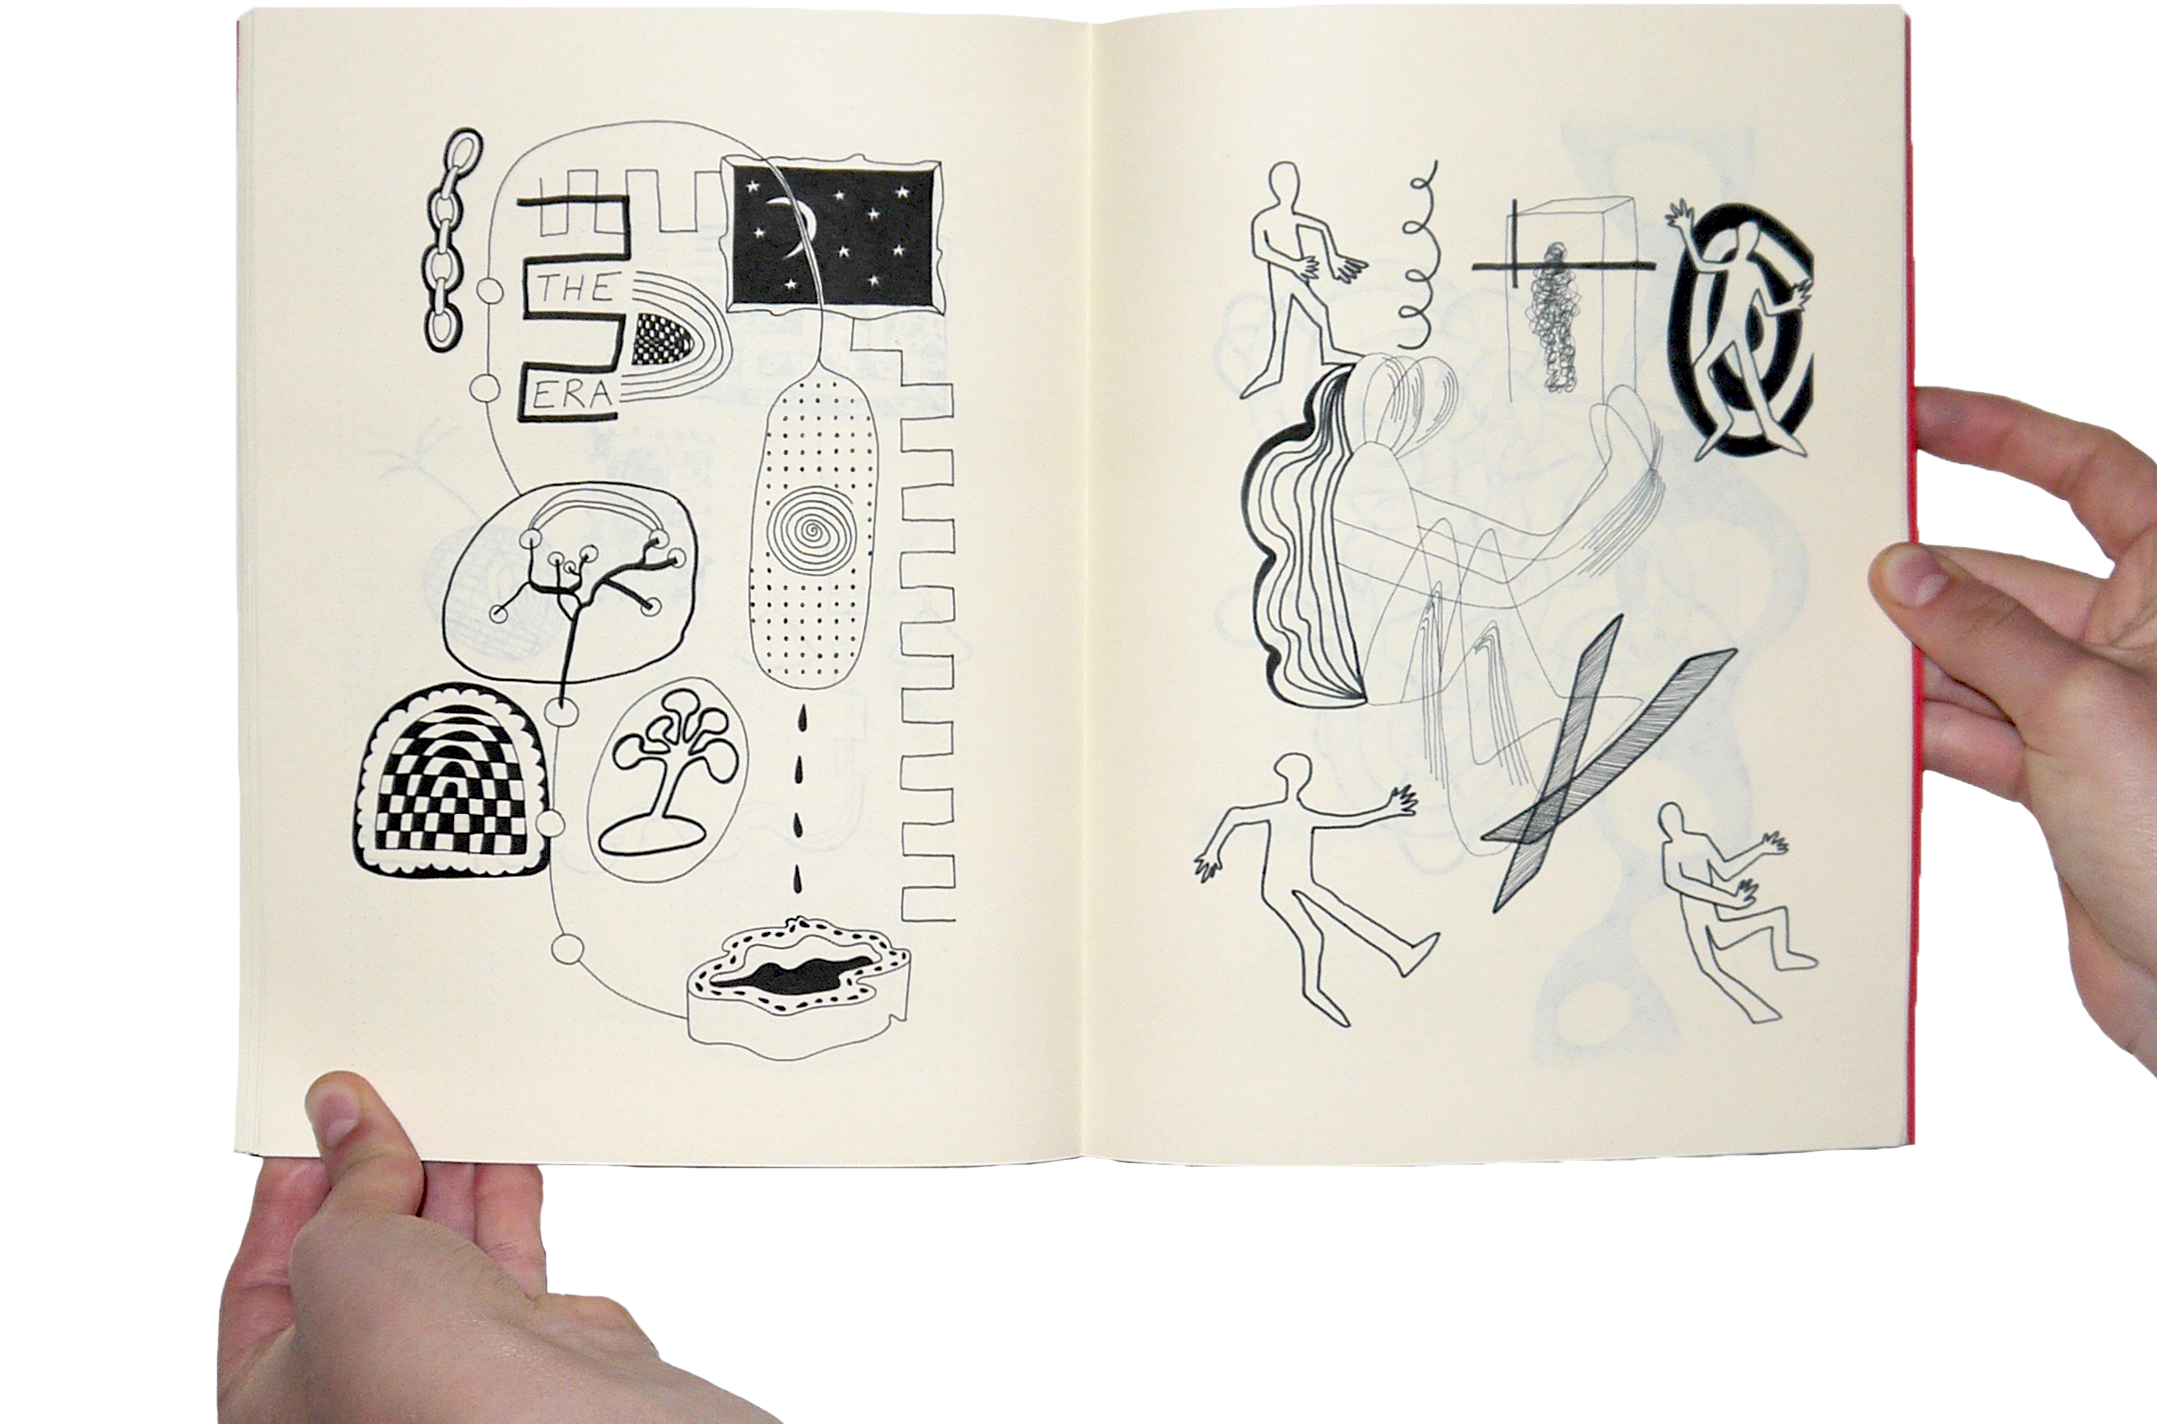 THE
ERA